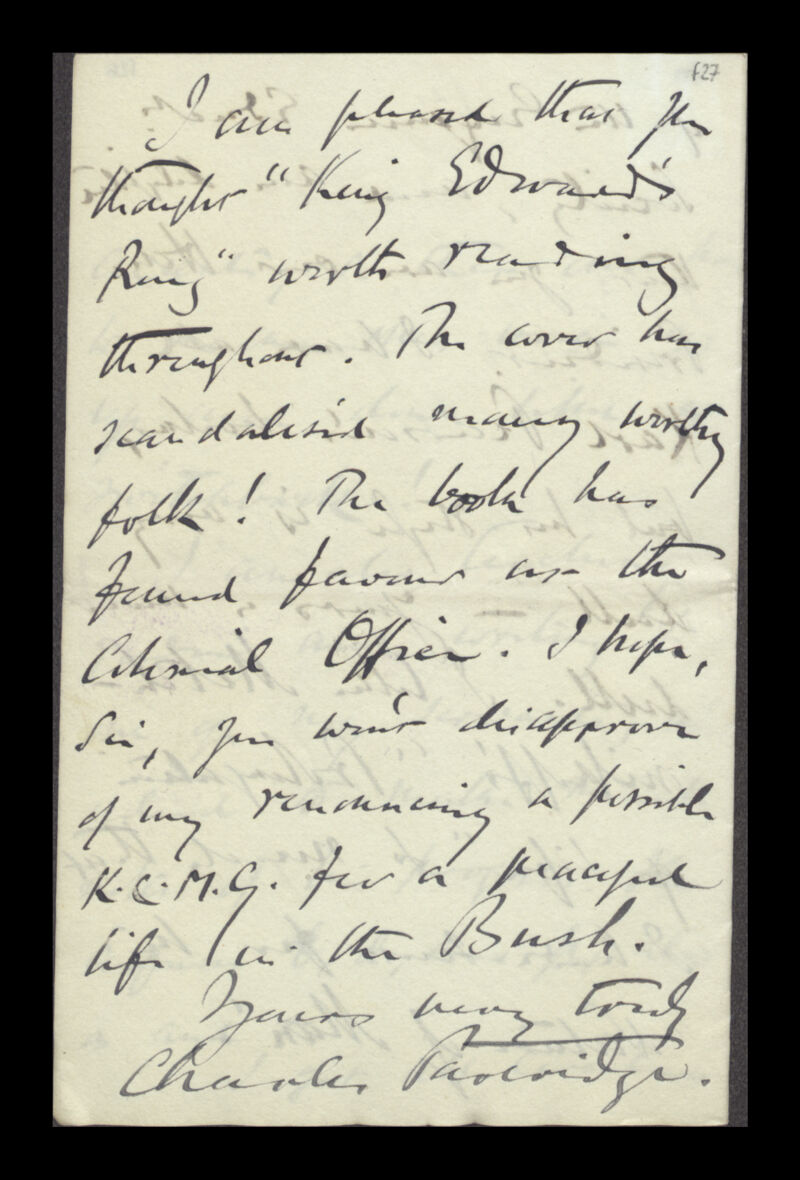 f27
I am pleased that you
thought "King Edward's
Ring" worth reading
throughout. The cover has
scandalised many worthy
folk! The book has
found favour at the
Colonial Office. I hope,
Sir, you won't disapprove
of my renouncing a possible
K.C.M.G. for a peaceful
life in the Bush.
Yours very truly
Charles Partridge.